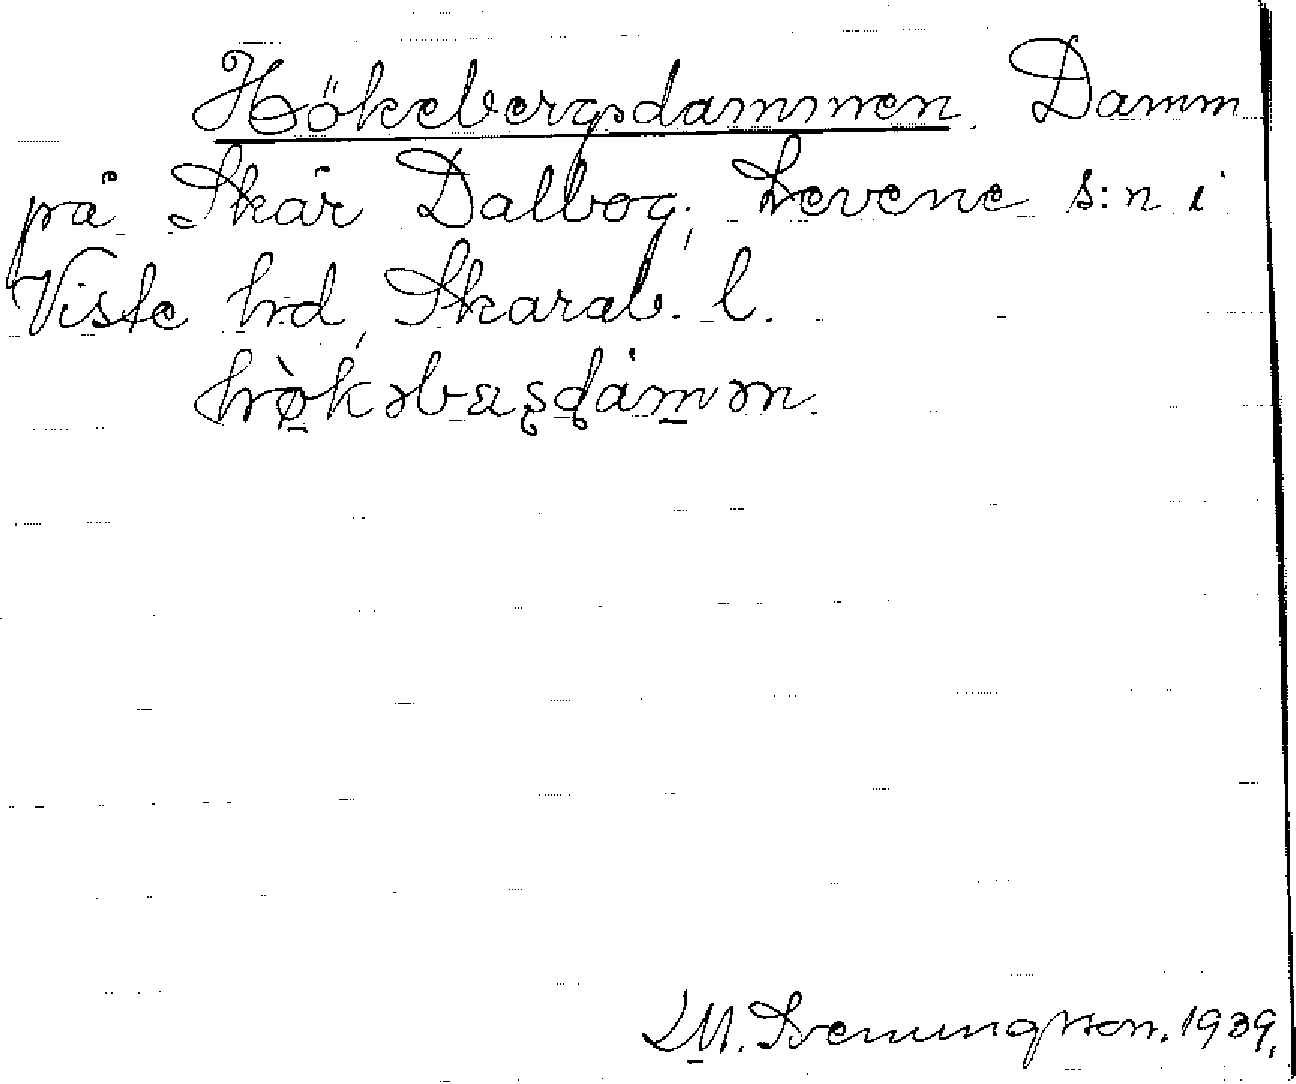 Hökebergsdammen. Damm
på Skår Dalbog, Levene s:n i
Viste hd, Skarab. l.
hø̀kəbæʂɖámən.
M. Sveningsson. 1939.